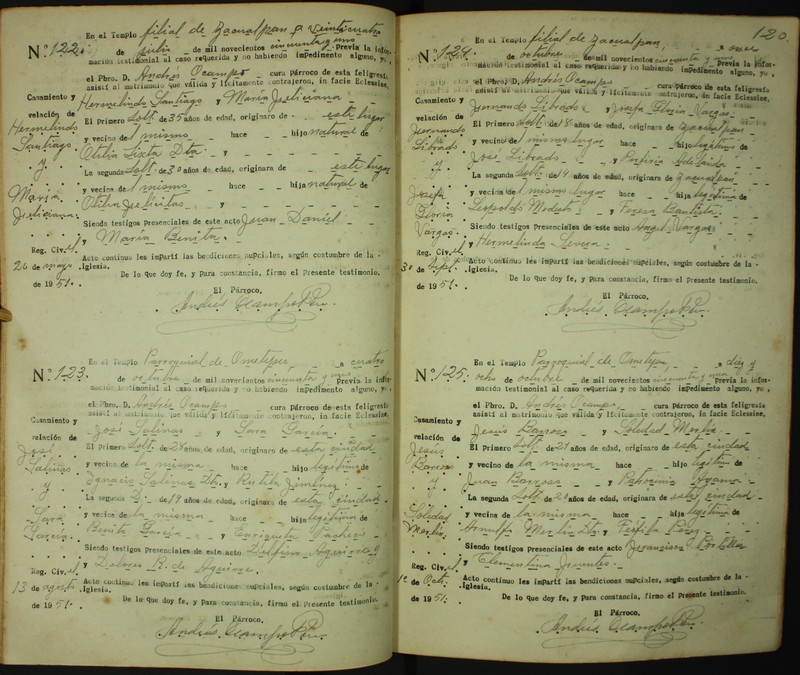 En el Templo filial de Zacualpan a veinticuatro
N.º 122. de julio de mil novecientos cincuenta y uno Previa la infor-
mación testimonial al caso requerida y no habiendo impedimento alguno, yo,
el Pbro. D. Andrés Ocampo cura Párroco de esta feligresía
asistí al matrimonio que válida y lícitamente contrajeron, in facie Eclessiae,
Casamiento y Hermelindo Santiago y María Feliciana
velación de El Primero Solt. de 35 años de edad, originaro de este lugar
Hermelindo y vecino del mismo hace hijo natural de
Santiago Otilia Sixta Dta. y
y La segunda Solt. de 30 años de edad, originara de este lugar
María y vecina del mismo hace hija natural de
Feliciana. Otilia Felicitas y
Siendo testigos Presenciales de este acto Juan Daniel
y María Benita.
Reg. Civ. el Acto continuo les impartí las bendiciones nupciales, según costumbre de la
26 de mayo Iglesia.
de 1951. De lo que doy fe, y Para constancia, firmo el Presente testimonio.
El Párroco.
Andrés Ocampo Pbro.
En el Templo Parroquial de Ometepec, a cuatro
N.º 123. de octubre de mil novecientos cincuenta y uno Previa la infor-
mación testimonial al caso requerida y no habiendo impedimento alguno, yo,
el Pbro. D. Andrés Ocampo cura Párroco de esta feligresía
asistí al matrimonio que válida y lícitamente contrajeron, in facie Eclessiae,
Casamiento y José Salinas y Sara García
velación de El Primero Solt. de 28 años de edad, originaro de esta ciudad
José y vecino de la misma hace hijo legítimo de
Salinas Ignacio Salinas Dto. y Rutila Jiménez
y La segunda S. de 19 años de edad, originara de esta ciudad
Sara y vecina de la misma hace hija legítima de
García. Benito García y Enriqueta Pacheco
Siendo testigos Presenciales de este acto Delfino Aguirre
y Dolores R. de Aguirre.
Reg. Civ. el Acto continuo les impartí las bendiciones nupciales, según costumbre de la
13 de agosto Iglesia.
de 1951. De lo que doy fe, y Para constancia, firmo el Presente testimonio.
El Párroco.
Andrés Ocampo Pbro.
120.
En el Templo filial de Zacualpan, a once
N.º 124. de octubre de mil novecientos cincuenta y uno Previa la infor-
mación testimonial al caso requerida y no habiendo impedimento alguno, yo,
el Pbro. D. Andrés Ocampo cura Párroco de esta feligresía
asistí al matrimonio que válida y lícitamente contrajeron, in facie Eclessiae,
Casamiento y Fernando Librado y Josefa Gloria Vargas
velación de El Primero Solt. de 18 años de edad, originaro de Zacualpan
Fernando y vecino del mismo lugar hace hijo legítimo de
Librado José Librado y Porfiria Adelaida
y La segunda Solt. de 14 años de edad, originara de Zacualpan
Josefa y vecina del mismo lugar hace hija legítima de
Gloria Leopoldo Modesto y Teresa Bautista
Vargas. Siendo testigos Presenciales de este acto Angel Vargas
y Hermelinda
Reg. Civ. el Acto continuo les impartí las bendiciones nupciales, según costumbre de la
30 de Sept. Iglesia.
de 1951. De lo que doy fe, y Para constancia, firmo el Presente testimonio.
El Párroco.
Andrés Ocampo Pbro.
En el Templo Parroquial de Ometepec, a diez y
N.º 125. ocho de octubre de mil novecientos cincuenta y uno Previa la infor-
mación testimonial al caso requerida y no habiendo impedimento alguno, yo,
el Pbro. D. Andrés Ocampo cura Párroco de esta feligresía
asistí al matrimonio que válida y lícitamente contrajeron, in facie Eclessiae,
Casamiento y Jesús Barroso y Soledad Merlín
velación de El Primero Solt. de 21 años de edad, originaro de esta ciudad
Jesús y vecino de la misma hace hijo legítimo de
Barroso Juan Barroso y Patrocinia
y La segunda Solt. de 21 años de edad, originara de esta ciudad
Soledad y vecina de la misma hace hija legítima de
Merlín. Arnulfo Merlín Dto. y
Siendo testigos Presenciales de este acto Francisco Portilla
y Clementina
Reg. Civ. el Acto continuo les impartí las bendiciones nupciales, según costumbre de la
1º de Oct. Iglesia.
de 1951. De lo que doy fe, y Para constancia, firmo el Presente testimonio.
El Párroco.
Andrés Ocampo Pbro.